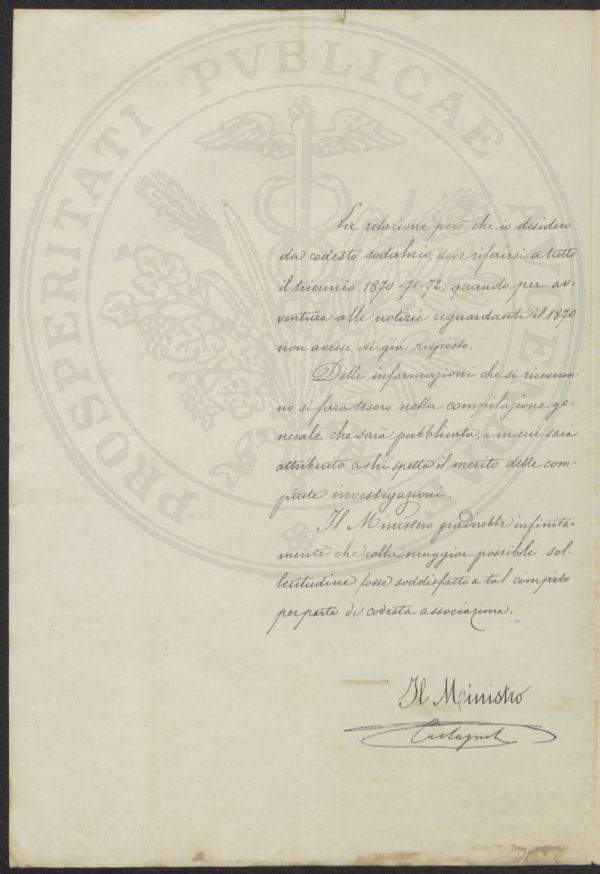 PROSPERITATI PVBLICAE
La relazione però, che io desidero
da codesto sodalizio, deve riferirsi a tutto
il triennio 1870-71-72, quando per av-
ventura alle notizie riguardanti il 1870
non avesse di già risposto.
Delle informazioni che si riceveran-
no si farà tesoro nella compilazione ge-
nerale che sarà pubblicata, e in cui sarà
attribuito a chi spetta il merito delle com-
piute investigazioni.
Il Ministero gradirebbe infinita-
mente che colla maggior possibile sol-
lecitudine fosse soddisfatto a tal compito
per parte di codesta associazione.
Il Ministro